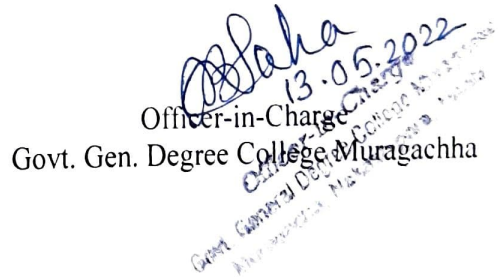 Saha
13.05.2022
Officer-in-Charge
Govt. Gen. Degree College Muragachha
Officer-in-Charge
Govt. General Degree College